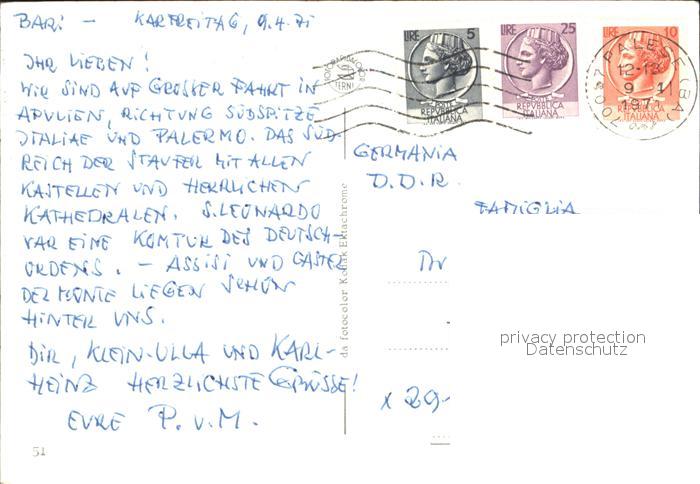 BARI – KARFREITAG, 9.4.71
IHR LIEBEN!
WIR SIND AUF GROSSER FAHRT IN
APULIEN, RICHTUNG SÜDSPITZE
ITALIENS UND PALERMO. DAS SÜD-
REICH DER STAUFER MIT ALLEN
KASTELLEN UND HERRLICHEN
KATHEDRALEN. S. LEONARDO
WAR EINE KOMTUR DES DEUTSCH-
ORDENS. – ASSISI UND CASTEL
DEL MONTE LIEGEN SCHÖN
HINTER UNS.
DIR, KLEIN-ULLA UND KARL-
HEINZ HERZLICHSTE GRÜSSE!
EURE P. u. M.
51
da fotocolor Kodak Ektachrome
LIRE 5
POSTE
REPUBBLICA
ITALIANA
LIRE 25
POSTE
REPUBBLICA
ITALIANA
LIRE 10
POSTE
REPUBBLICA
ITALIANA
70027 PALESE (BA)
9 4
1971
GERMANIA
D.D.R.
FAMIGLIA
X 29
privacy protection
Datenschutz